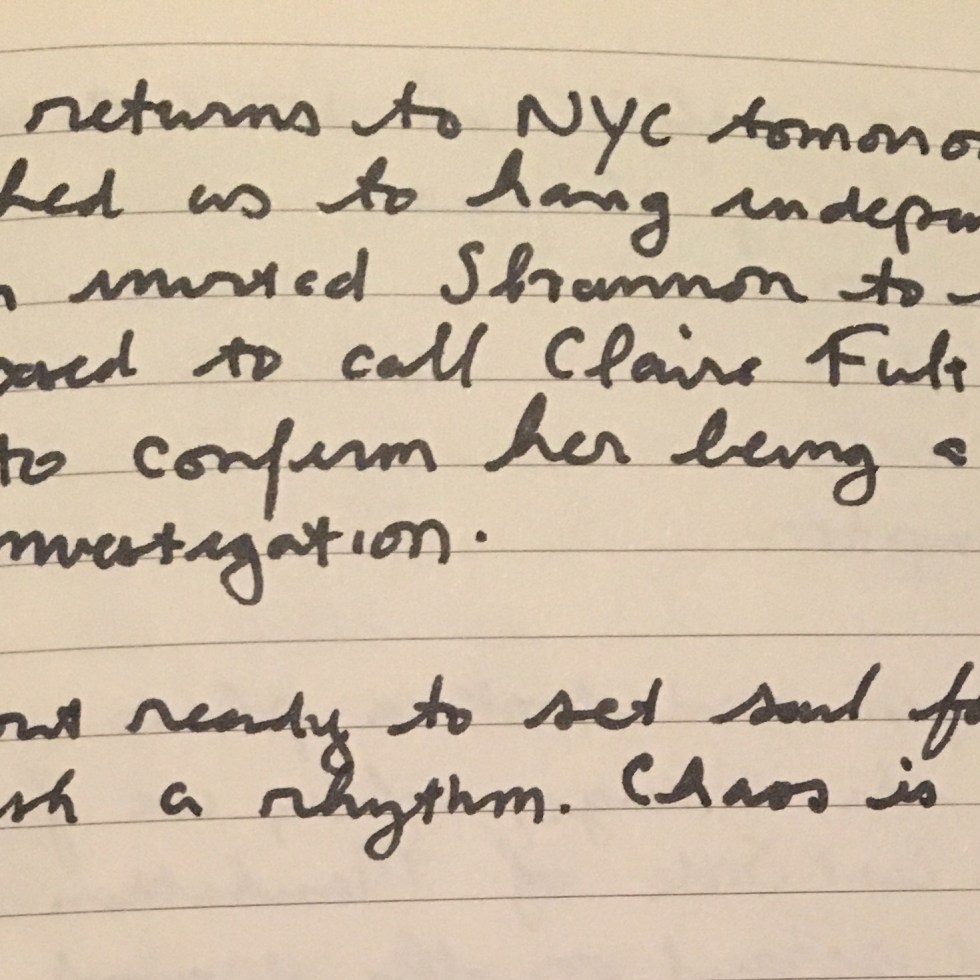 returns to NYC tomorro
hed us to hang indepen
n invited Shannon to
posed to call Claire Fult
to confirm her being a
investigation.
out ready to set sail fo
sh a rhythm. Chaos is